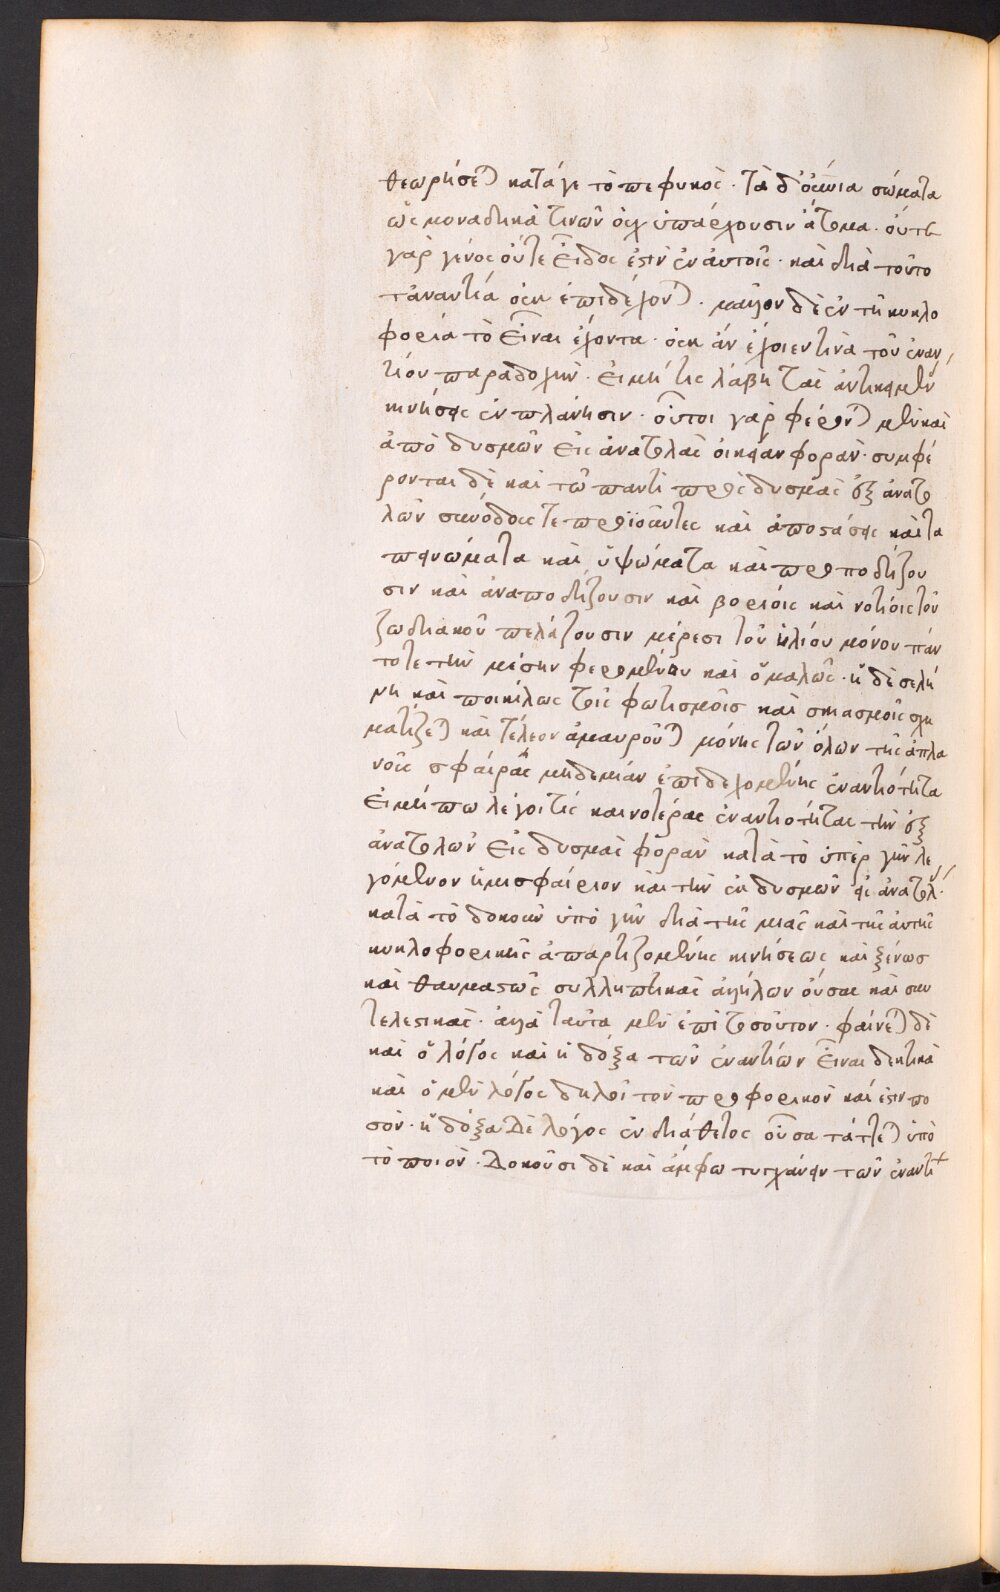 θεωρήσεται κατάγε τὸ πεφυκὸς · τὰ δ' οὐράνια σώματα
ὡς μοναδικὰ τινῶν οὐχ ὑπάρχουσιν ἄτομα · οὔτε
γὰρ γένος οὔτε εἶδος ἐστὶν ἐν αὐτοῖς · καὶ διὰ τοῦτο
τἀναντία οὐκ ἐπιδέχονται · μᾶλλον δὲ ἐν τῆ κυκλο
φορία τὸ εἶναι ἔχοντα · οὐκ ἂν ἔχοιεν τινὰ τοῦ ἐναν
τίου παραδοχὴν · εἰ μή τις λάβη τὰς ἀντικειμένας
κινήσεις ἐν πλάνησιν · οὗτοι γὰρ φέρονται μὲν καὶ
ἀπὸ δυσμῶν εἰς ἀνατολὰς οἰκείαν φορὰν · συμφέ
ρονται δὲ καὶ τῶ παντὶ πρὸς δυσμὰς ἐξ ἀνατο
λῶν συνόδους τε προϊόντες καὶ ἀποστάσεις καὶ τα
πεινώματα καὶ ὑψώματα καὶ προποδίζου
σιν καὶ ἀναποδίζουσιν καὶ βορείοις καὶ νοτίοις τοῦ
ζωδιακοῦ πελάζουσιν μέρεσι τοῦ ἡλίου μόνου πάν
τοτε τὴν μέσην φερομένου καὶ ὁμαλῶς · ἡ δὲ σελή
νη καὶ ποικίλως τοῖς φωτισμοῖς καὶ σκιασμοῖς σχη
ματίζεται καὶ τέλεον ἀμαυροῦται μόνης τῶν ὅλων τῆς ἀπλα
νοῦς σφαίρας μηδεμίαν ἐπιδεχομένης ἐναντιότητα
εἰ μήπω λέγοι τίς καινοτέρας ἐναντιότητας τὴν ἐξ
ἀνατολῶν εἰς δυσμὰς φορὰν κατὰ τὸ ὑπὲρ γῆν λε
γόμενον ἡμισφαίριον καὶ τὴν ἐκ δυσμῶν εἰς ἀνατολ ·
κατὰ τὸ δοκοῦν ὑπὸ γῆν διὰ τῆς μιᾶς καὶ τῆς αὐτῆς
κυκλοφορικῆς ἀπαρτιζομένης κινήσεως καὶ ξένως
καὶ θαυμαστῶς συλληπτικὰς ἀλλήλων οὔσας καὶ συν
τελεστικὰς · ἀλλὰ ταῦτα μὲν ἐπὶ τοσοῦτον · φαίνεται δὲ
καὶ ὁ λόγος καὶ ἡ δόξα τῶν ἐναντίων εἶναι δεκτικὰ
καὶ ὁ μὲν λόγος δηλοῖ τὸν προφορικὸν καί ἐστιν πο
σόν · ἡ δόξα δὲ λόγος ἐνδιάθετος οὖσα τάττεται ὑπὸ
τὸ ποιόν · Δοκοῦσι δὲ καὶ ἄμφω τυγχάνειν τῶν ἐναντί